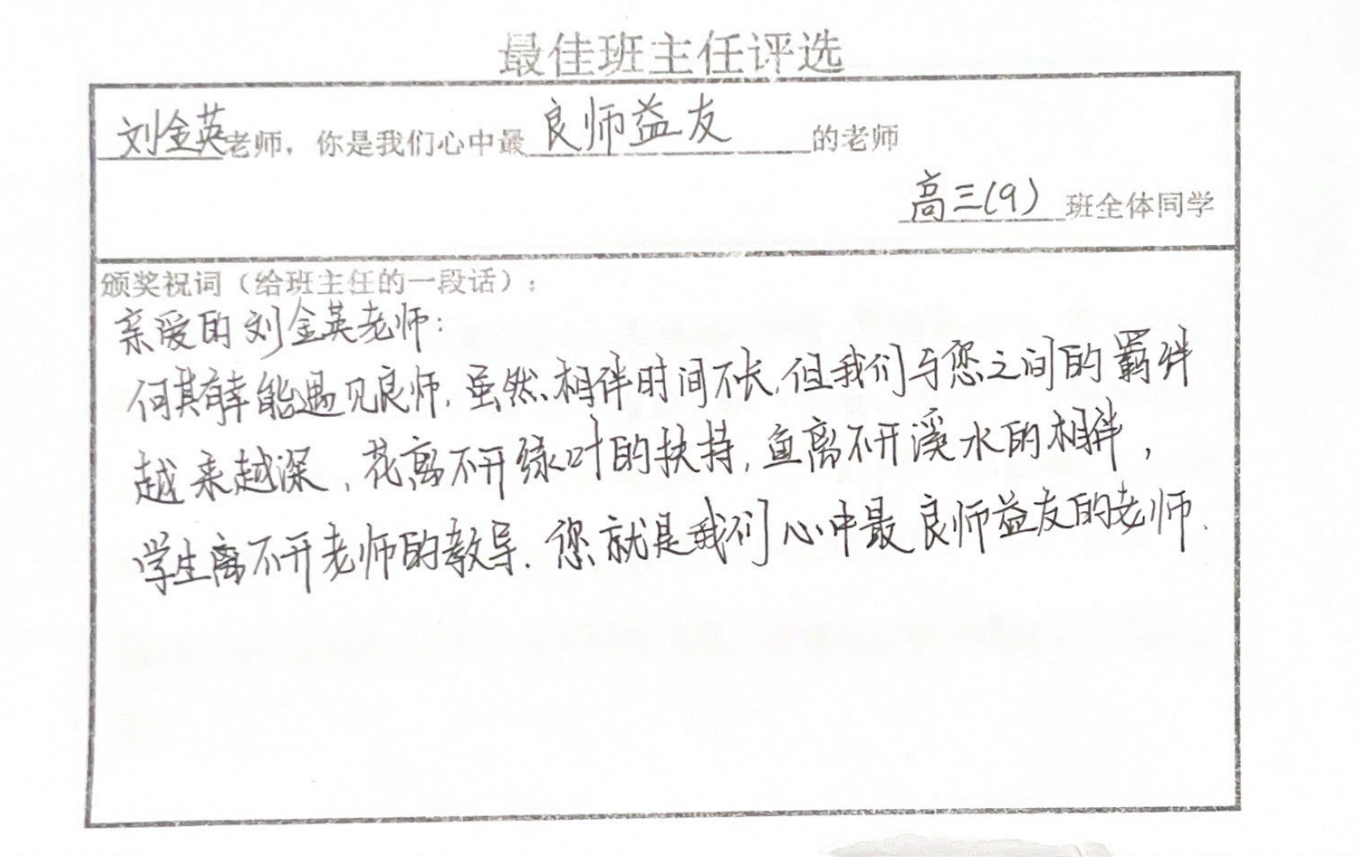 最佳班主任评选
刘金英老师，你是我们心中最良师益友的老师
高三(9)班全体同学
颁奖祝词（给班主任的一段话）：
亲爱的刘金英老师：
何其有幸能遇见良师，虽然相伴时间不长，但我们与您之间的羁绊
越来越深，花离不开绿叶的扶持，鱼离不开溪水的相伴，
学生离不开老师的教导．您就是我们心中最良师益友的老师．